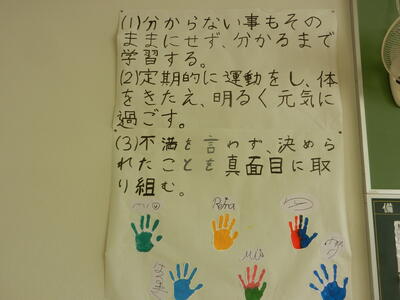 (1)分からない事もその
ままにせず、分かるまで
学習する。
(2)定期的に運動をし、体
をきたえ、明るく元気に
過ごす。
(3)不満を言わず、決めら
れたことを真面目に取
り組む。
備